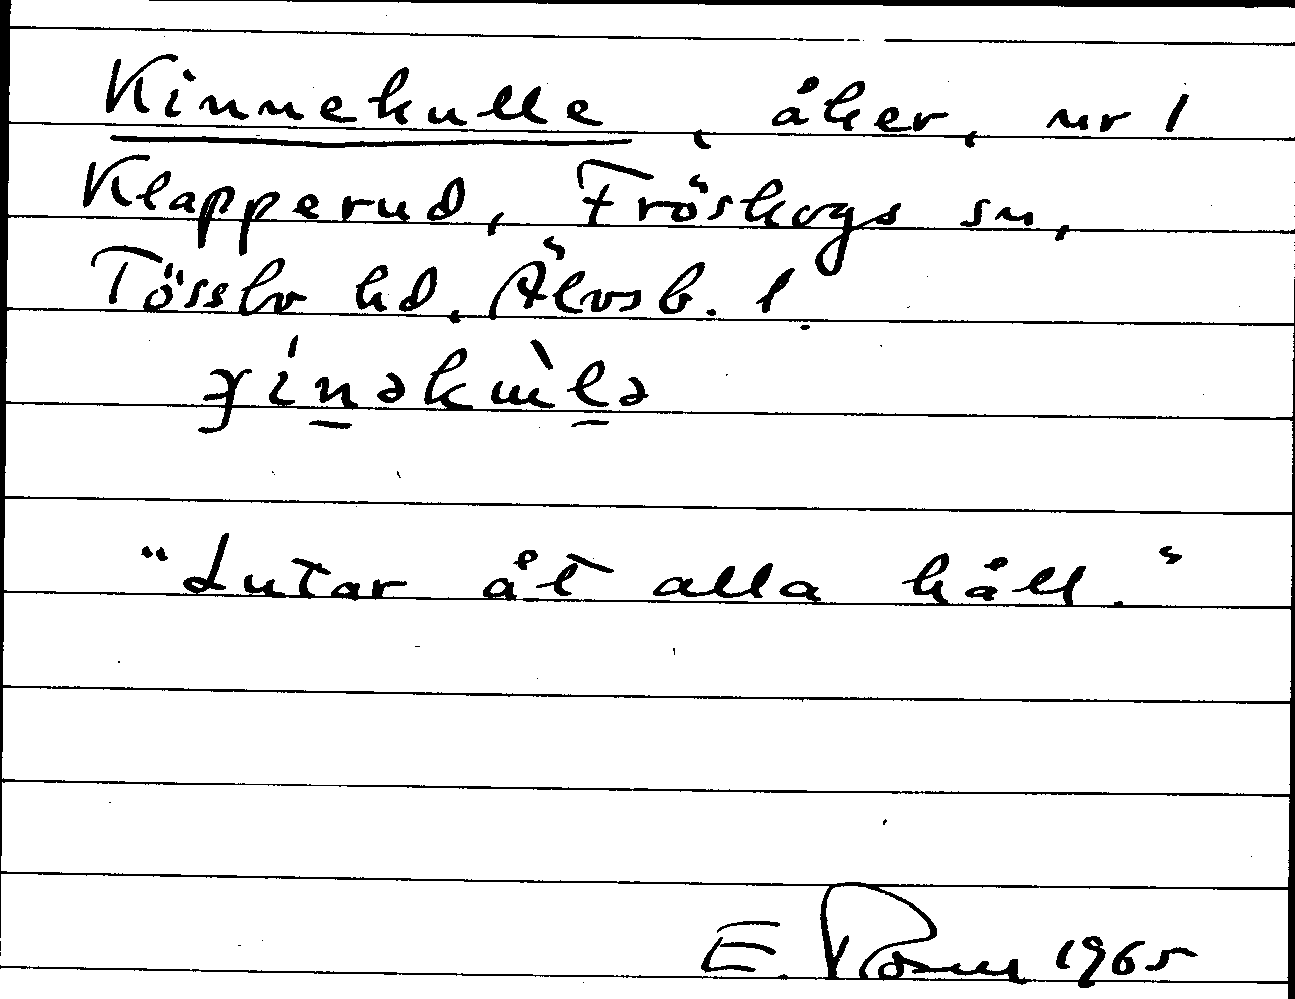 Kinnekulle, åker, nr 1
Klapperud, Fröskogs sn,
Tössbo hd, Älvsb. l.
"Lutar åt alla håll."
E. 1965